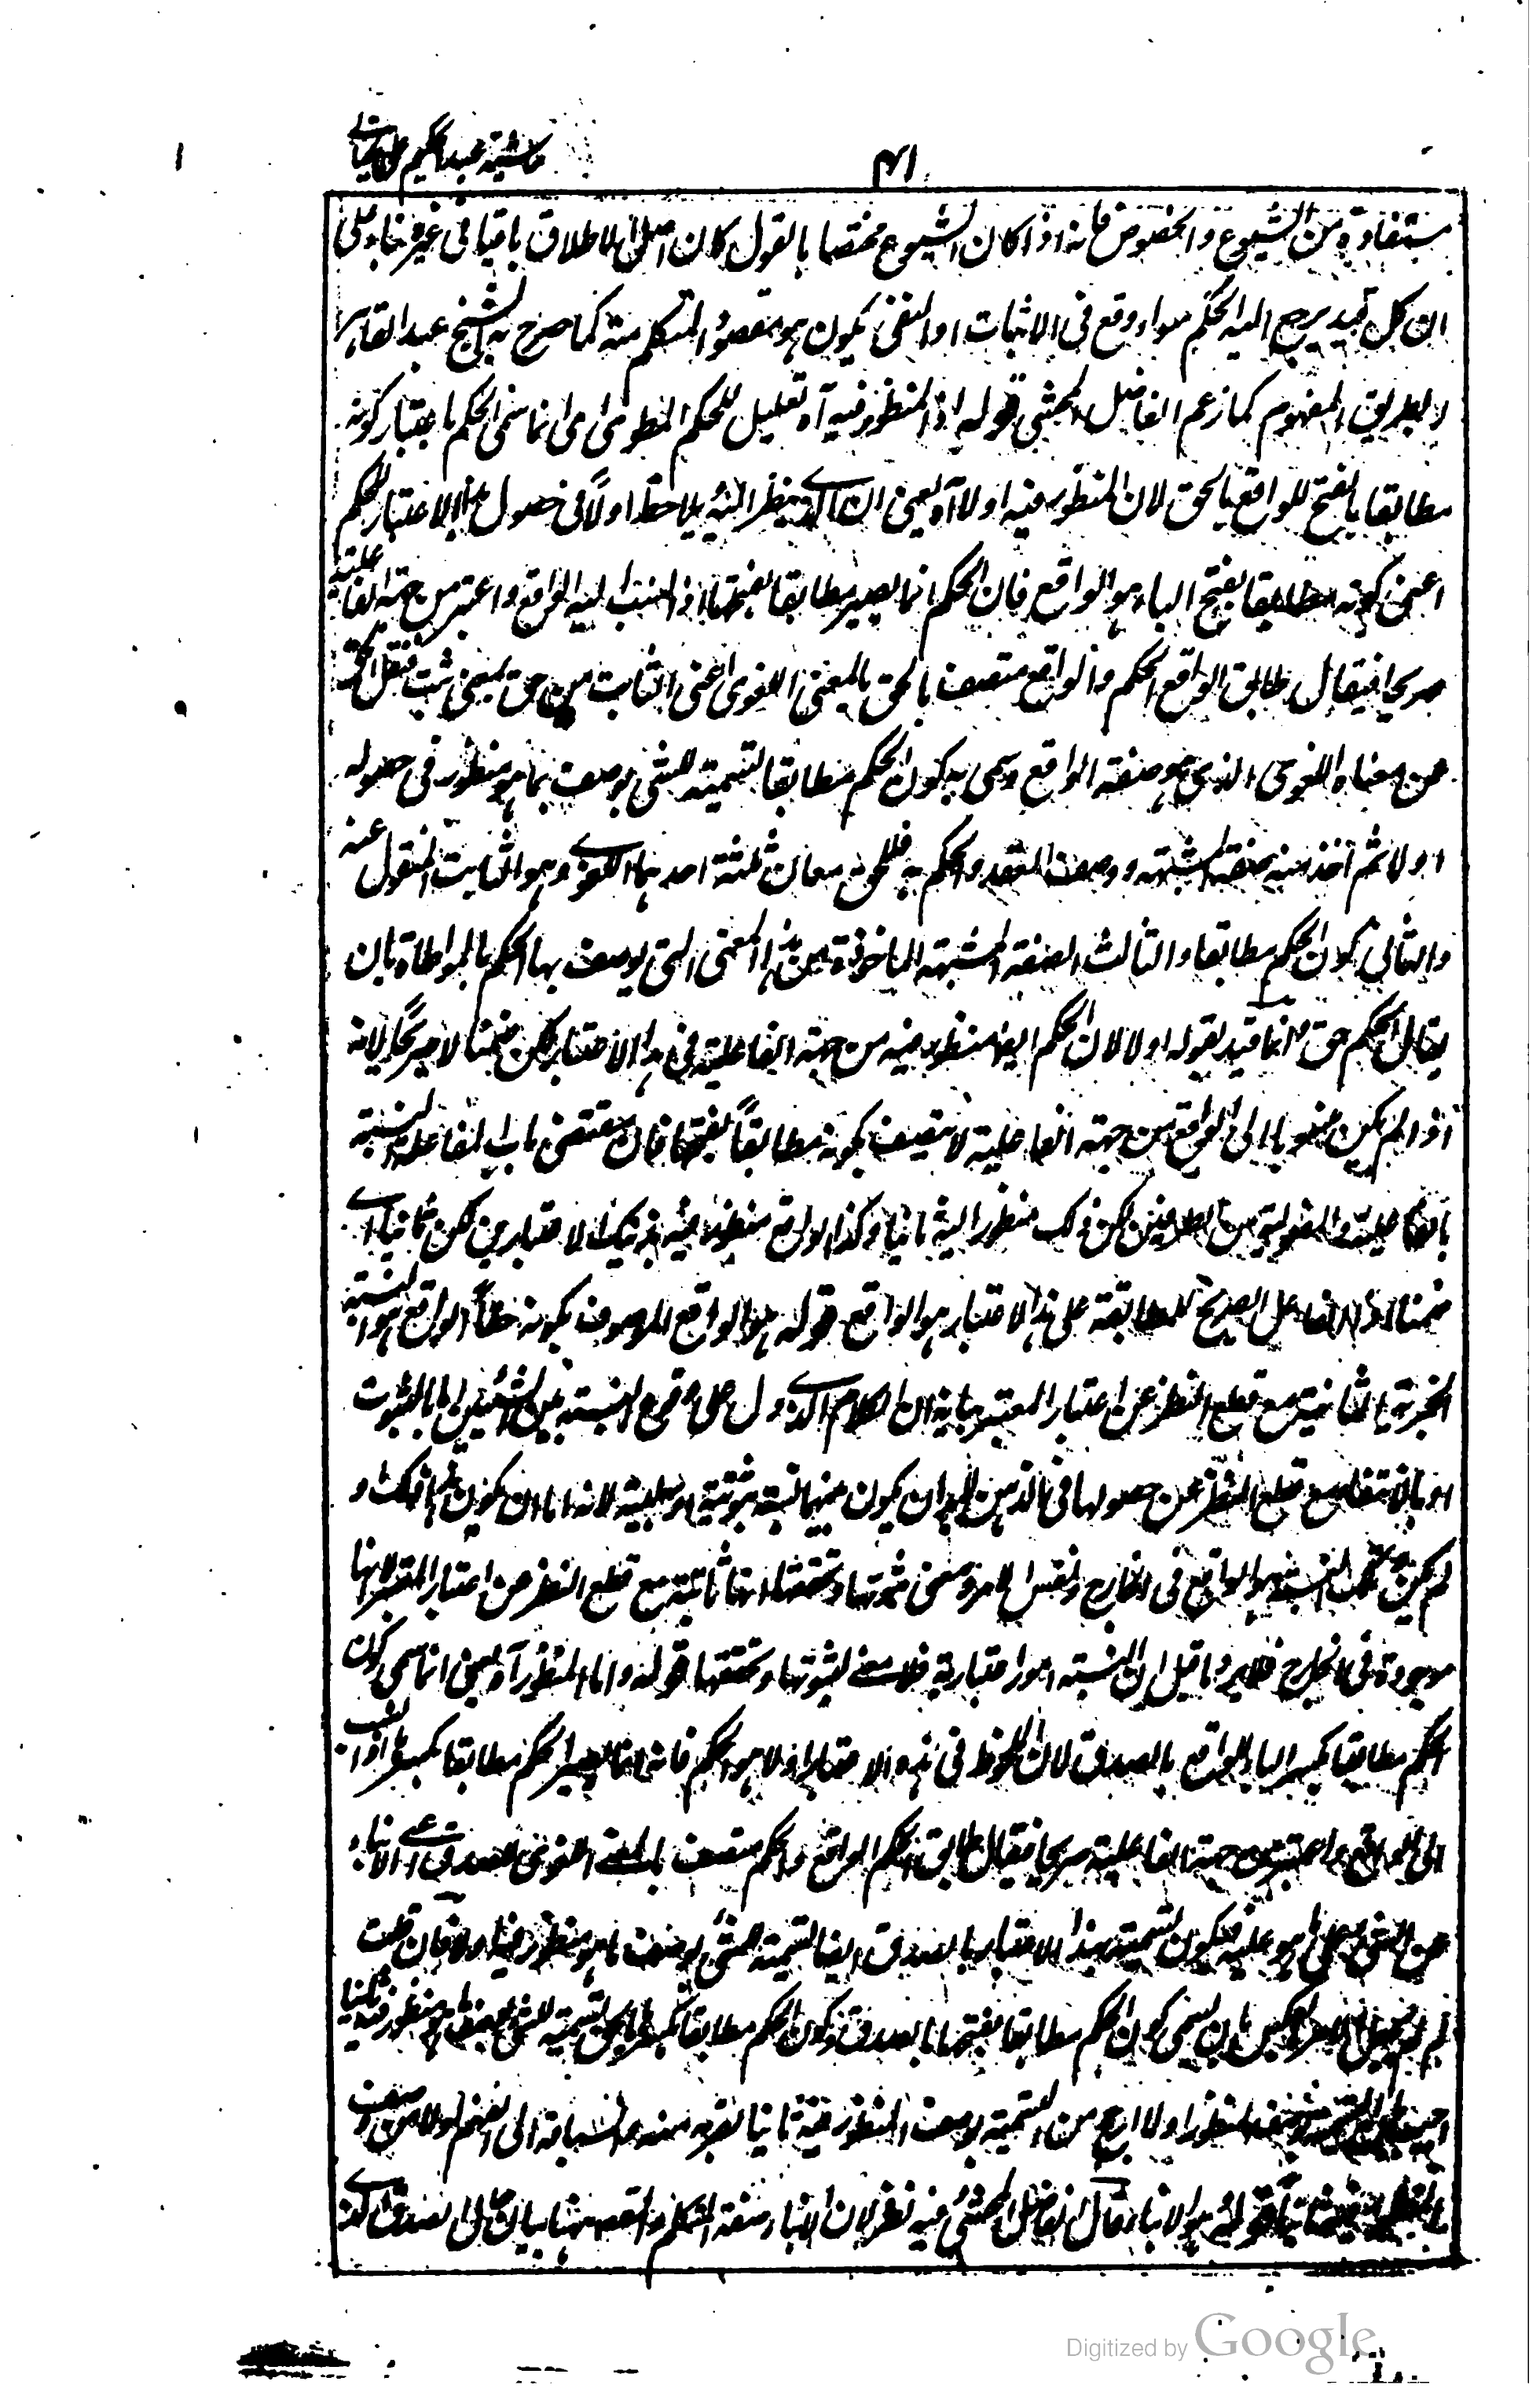 حاشية عبد الحكيم على الخيالى
٤١
مستفادة من الشيوع والخصوص فانه اذا كان الشيوع مختصا بالقول كان اصل الاطلاق باقيا فى غيره بناء على
ان كل قيد يرجع اليه الحكم سواء وقع فى الاثبات او النفى يكون هو مقصود المتكلم منه كما صرح به الشيخ عبد القاهر
لا بطريق المفهوم كما زعم الفاضل المحشى قوله اذ المنظور فيه آه تعليل للحكم المطوى اى انما سمى الحكم باعتبار كونه
مطابقا بالفتح للواقع بالحق لان المنظور فيه اولا آه يعنى ان الذى ينظر اليه يلاحظ اولاً فى حصول هذا الاعتبار للحكم
اعنى كونه مطابقا بفتح الباء هو الواقع فان الحكم انما يصير مطابقا بفتحها اذا نسب اليه الواقع واعتبر من جهة الفاعلية
صريحا فيقال طابق الواقع الحكم والواقع متصف بالحق بالمعنى اللغوى اعنى الثابت من حق بمعنى ثبت فنقل الحق
عن معناه اللغوى الذى هو صفة الواقع وسمى به كون الحكم مطابقا تسمية للشئ بوصف ما هو منظور فى حصوله
اولا ثم اخذ منه صفة مشبهة ووصف العقد والحكم به فللحق معان ثلثة احدها اللغوى وهو الثابت المنقول عنه
والثانى كون الحكم مطابقا والثالث الصفة المشبهة الماخوذة من هذا المعنى التى يوصف بها الحكم بالمواطاة بان
يقال الحكم حق وانما قيد بقوله اولا لان الحكم ايضا منظور فيه من جهة الفاعلية فى هذا الاعتبار لكن ضمنا لا صريحًا لانه
اذا لم يكن منسوبا الى الواقع من جهة الفاعلية لا يتصف بكونه مطابقاً بفتحها فان مقتضى باب المفاعلة النسبة
بالفاعلية والمفعولية من الطرفين لكن ذلك منظور اليه ثانيا وكذا الواقع منظور فيه بذينك الاعتبارين لكن ثانيا اى
ضمنا اذ الفاعل الصريح للمطابقة على هذا الاعتبار هو الواقع قوله هو الواقع الموصوف بكونه حقاً الواقع هو النسبة
الخبرية الثابتة مع قطع النظر عن اعتبار المعتبر بيانه ان الكلام الذى دل على وقوع النسبة بين الشيئين اما بالثبوت
او بالانتفاء مع قطع النظر عن حصولها فى الذهن لابد ان يكون بينهما نسبة ثبوتية او سلبية لانه اما ان يكون هذا ذاك او
لم يكن فتلك النسبة هو الواقع فى الخارج ونفس الامر ومعنى ثبوتها وتحققها انها ثابتة مع قطع النظر عن اعتبار المعتبر لا انها
موجودة فى الخارج فلا يرد ما قيل ان النسبة امور اعتبارية فلا معنى لثبوتها وتحققها قوله واما المنظور آه يعنى انما سمى كون
الحكم مطابقا بكسر الباء للواقع بالصدق لان الملحوظ فى هذا الاعتبار اولا هو الحكم فانه انما يصير الحكم مطابقا بكسرها اذا نسب
الى الواقع واعتبر من جهة الفاعلية صريحا فيقال طابق الحكم الواقع والحكم متصف بالمعنى اللغوى للصدق اعنى الانباء
عن الشئ على ما هو عليه فيكون تسمية هذا الاعتبار بالصدق ايضا تسمية للشئ بوصف ما هو منظور فيه اولا فان قلت
لم لم يجعل الامر بالعكس بان يسمى كون الحكم مطابقا بفتحها بالصدق وكون الحكم مطابقا بكسرها بالحق تسمية للشئ بوصف ما هو منظور فيه ثانيا
اجيب بان التسمية بوصف المنظور اولا ارجح من التسمية بوصف المنظور فيه ثانيا لقربه منه والسباقه الى الفهم اولا من وصف
المنظور فيه ثانيا قوله هو الانباء قال الفاضل المحشى فيه نظر لان الانباء صفة المتكلم والمقصود ههنا بيان معنى الصدق الذى